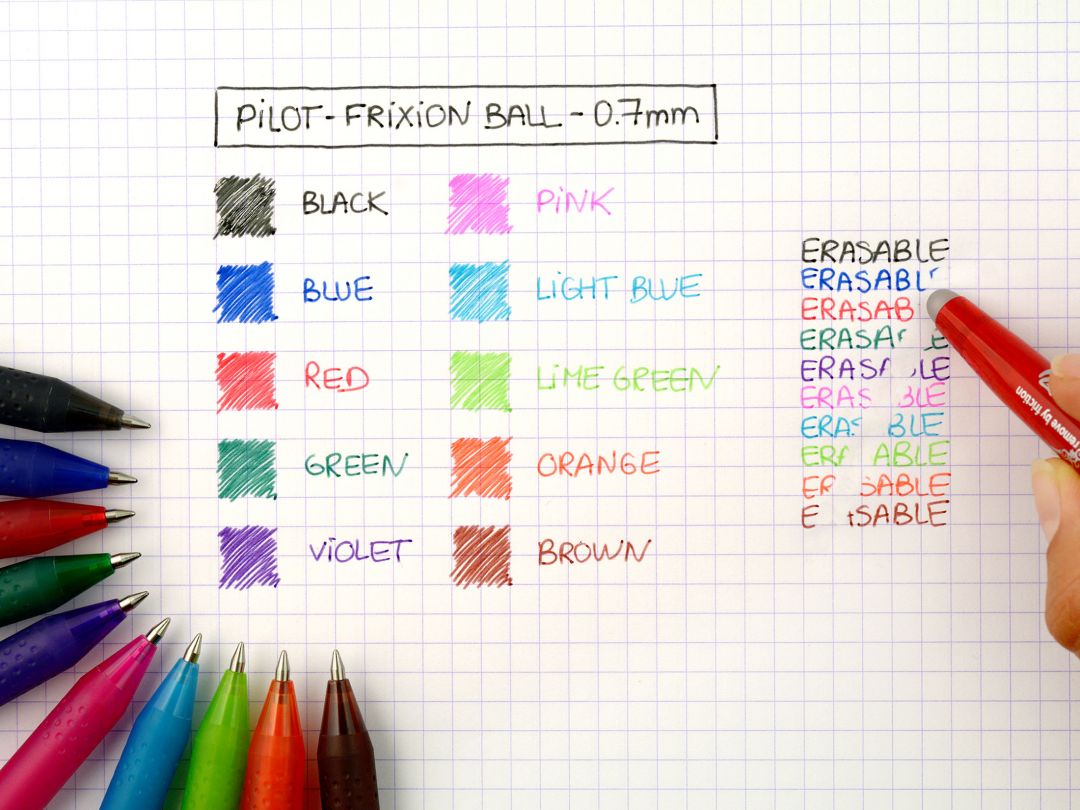 PiLOT-FRiXiON BALL-0.7mm
BLACK PiNK
BLUE LiGHT BLUE
RED LiME GREEN
GREEN ORANGE
ViOLET BROWN
ERASABLE
ERASABL
ERASAB
ERASA E
ERAS LE
ERAS LE
ERA BLE
ER ABLE
E SABLE
E SABLE
remove by friction